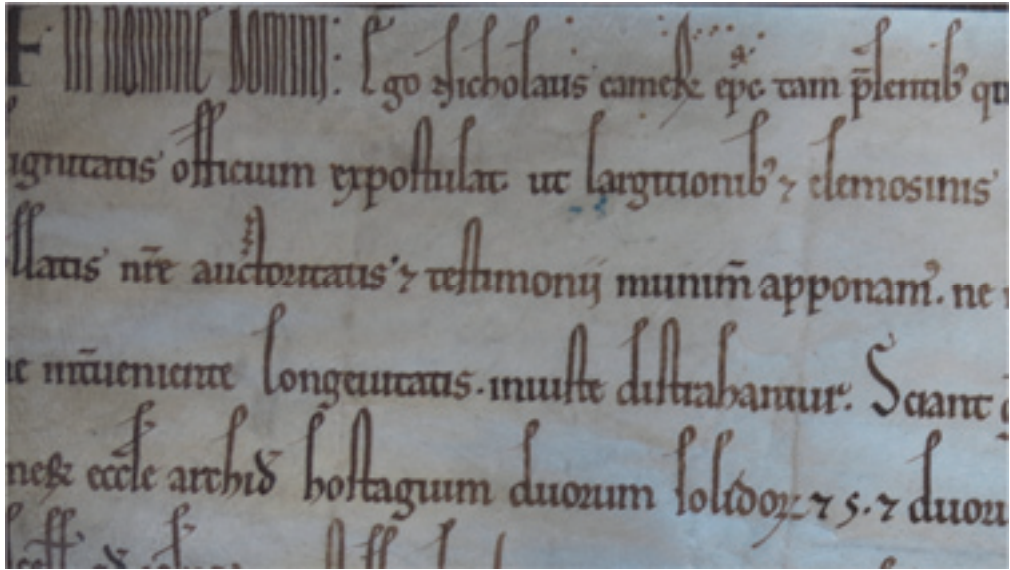 In nomine domini: Ego Nicholaus cameꝝ ep̄c tam p̄sentibꝰ
ignitatis officium expostulat ut largitionibꝰ ⁊ elemosinis
llatis nr̄e auctoritatis ⁊ testimonij munim̄ apponamꝰ. ne
int̄ueniente longeuitatis. iniuste distrahantur. Sciant
eccl̄e archid̄ hostagium duorum solidoꝝ ⁊ 5. ⁊ duoru